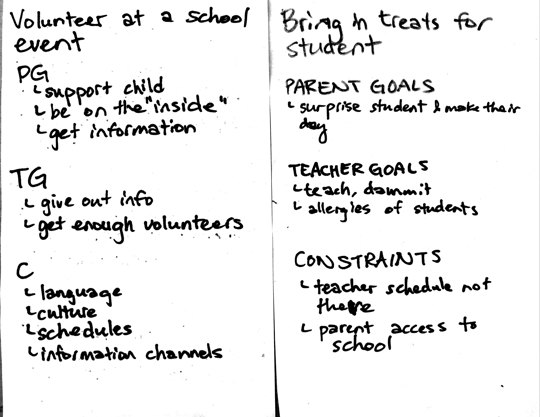 Volunteer at a school
event
PG
↳support child
↳be on the "inside"
↳get information
TG
↳give out info
↳get enough volunteers
C
↳language
↳culture
↳schedules
↳information channels
Bring in treats for
student
PARENT GOALS
↳surprise student & make their
day
TEACHER GOALS
↳teach, dammit
↳allergies of students
CONSTRAINTS
↳teacher schedule not
there
↳parent access to
school